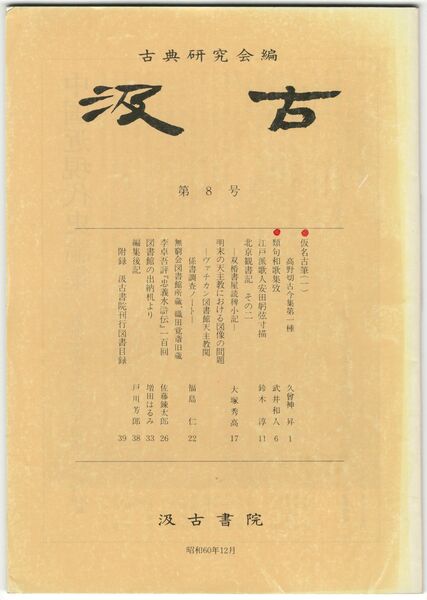 古典研究会編
汲古
第8号
仮名古筆(一)
高野切古今集第一種 久曾神昇 1
類句和歌集攷 武井和人 6
江戸派歌人安田躬弦寸描 鈴木淳 11
北京観書記 その二
―双楮書屋読稗小記― 大塚秀高 17
明末の天主教における図像の問題
―ヴァチカン図書館天主教関
係書調査ノート― 福島仁 22
無窮会図書館所蔵 織田覚斎旧蔵
李卓吾評『忠義水滸伝』一百回 佐藤錬太郎 26
図書館の出納机より 増田はるみ 33
編集後記 戸川芳郎 38
附録 汲古書院刊行図書目録 39
汲古書院
昭和60年12月